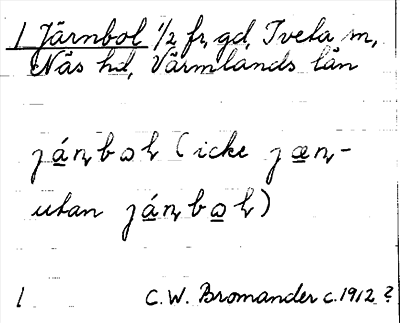 1 Järnbol 1/2 fr, gd, Tveta sn,
Näs hd, Värmlands län
já̱ꞃbɷɦ (icke jæ̱ꞃ-
utan já̱ꞃbɷ̱ɦ)
1 C.W. Bromander c. 1912 ?